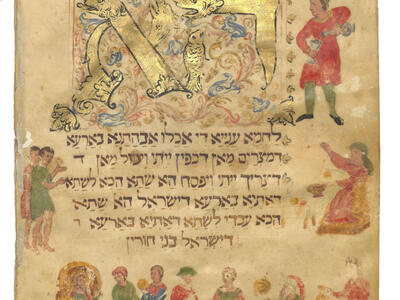 הא
לחמא עניא די אכלו אבהתנא בארעא
דמצרים מאן דכפין ייתי ויכול מאן ד
דצריך ייתי ויפסח הא שתא הכא לשתא
דאתיא בארעא דישראל הא שתא
הכא עבדי לשתא דאתיא בארעא
דישראל בני חורין